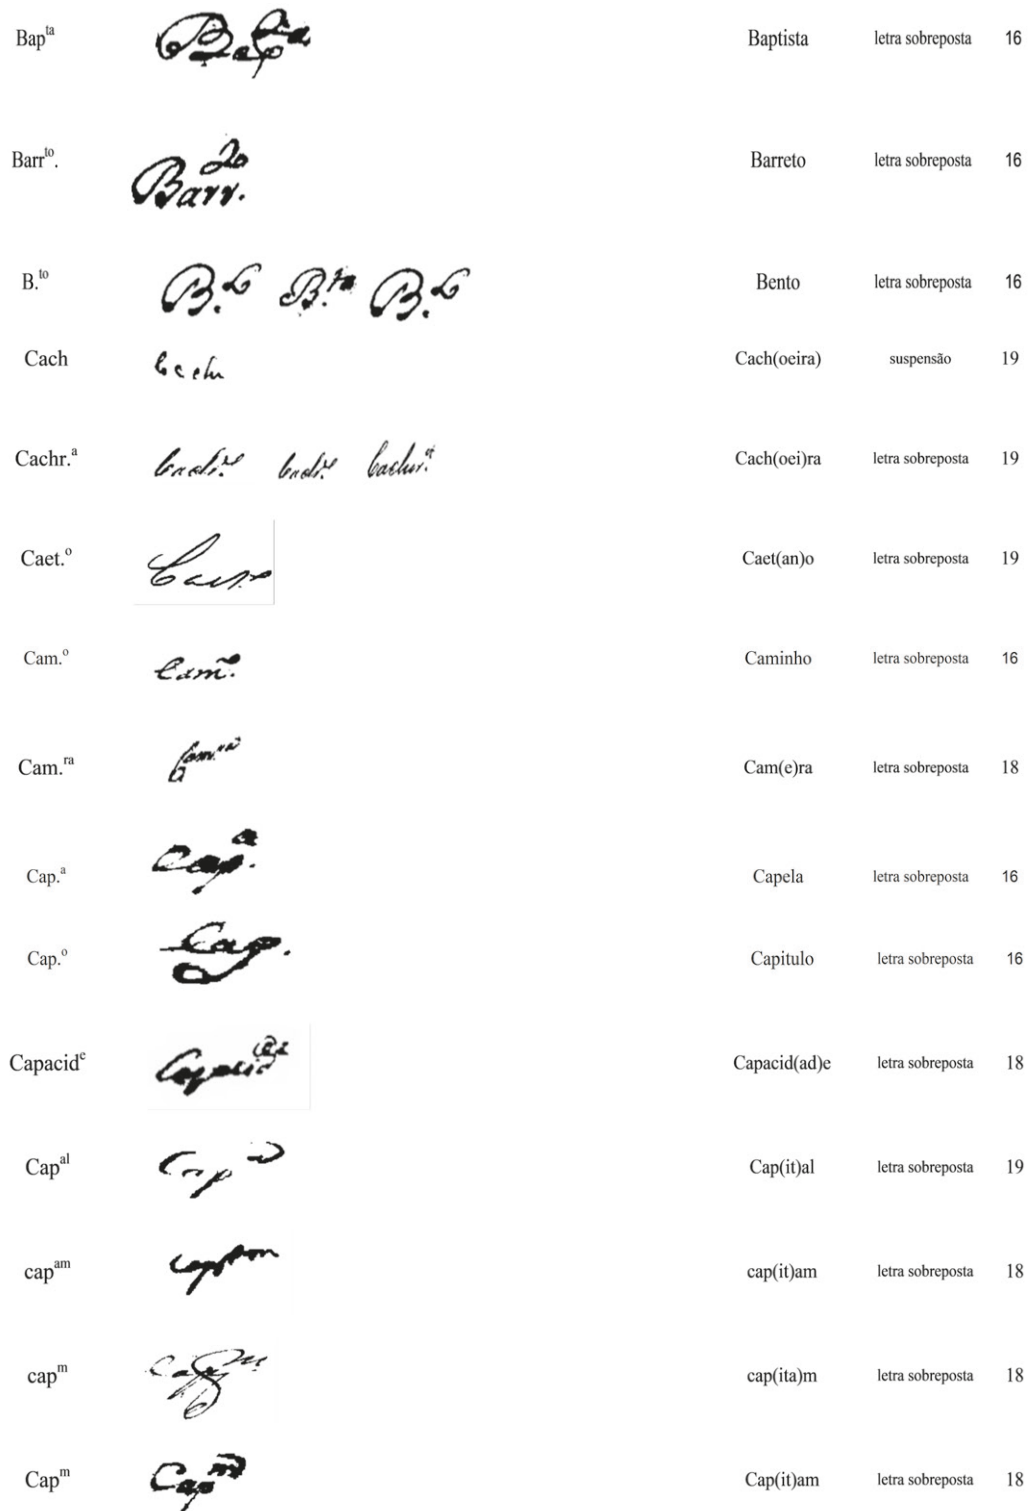 Bapᵗᵃ Bapᵗᵃ Baptista letra sobreposta 16
Barrᵗᵒ. Barrᵗᵒ. Barreto letra sobreposta 16
B.ᵗᵒ B.ᵗᵒ B.ᵗᵒ B.ᵗᵒ Bento letra sobreposta 16
Cach Cach Cach(oeira) suspensão 19
Cachr.ᵃ Cachr.ᵃ Cachr.ᵃ Cachr.ᵃ Cach(oei)ra letra sobreposta 19
Caet.º Caet.º Caet(an)o letra sobreposta 19
Cam.º Cam.º Caminho letra sobreposta 16
Cam.ʳᵃ Cam.ʳᵃ Cam(e)ra letra sobreposta 18
Cap.ᵃ Cap.ᵃ Capela letra sobreposta 16
Cap.º Cap.º Capitulo letra sobreposta 16
Capacidᵉ Capacidᵉ Capacid(ad)e letra sobreposta 18
Capᵃˡ Capᵃˡ Cap(it)al letra sobreposta 19
capᵃᵐ capᵃᵐ cap(it)am letra sobreposta 18
capᵐ capᵐ cap(ita)m letra sobreposta 18
Capᵐ Capᵐ Cap(it)am letra sobreposta 18